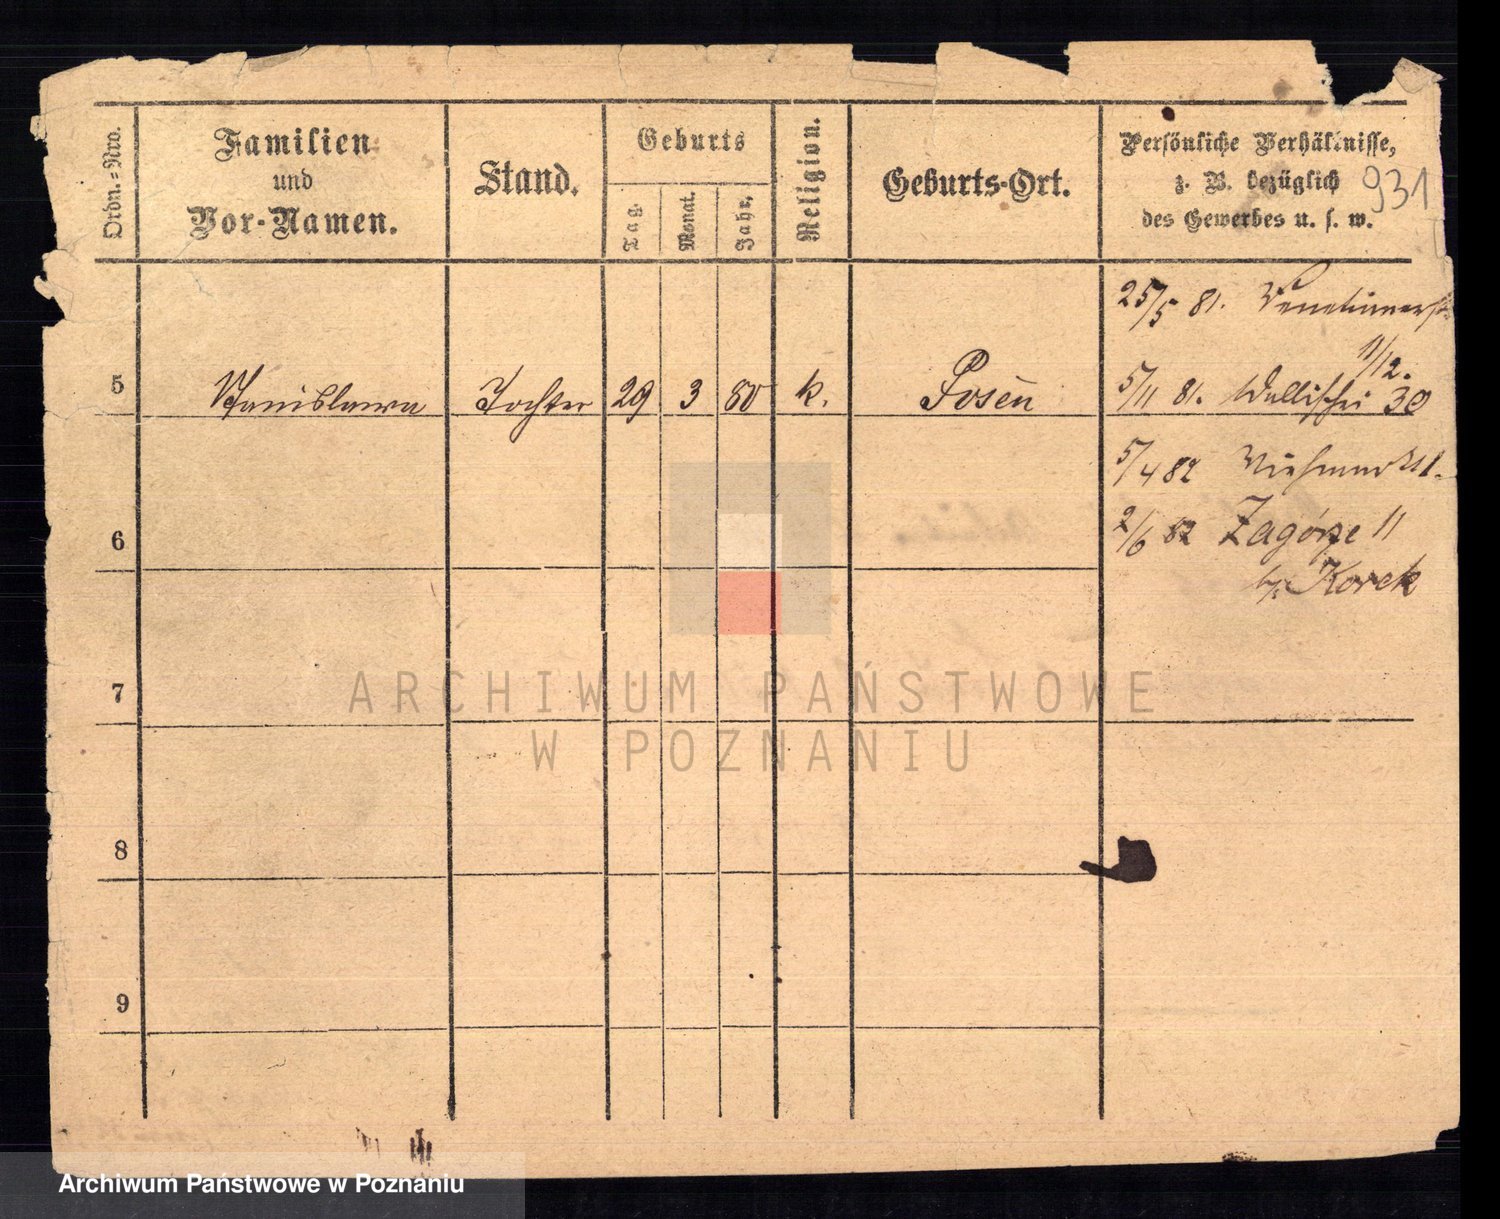 Ordn.=Nro.
Familien
und
Vor-Namen.
Stand.
Geburts
Tag.
Monat.
Jahr.
Religion.
Geburts-Ort.
Persönliche Verhältnisse,
z. B. bezüglich
des Gewerbes u. s. w.
931
25/5 81.
11/12.
5 Stanislawa Tochter 29 3 80 k. Posen 5/11 81. Wallischei 30
5/4 82 Viehmarkt
6 2/6 82 Zagórze 11
b/. Korek
7
8
9
ARCHIWUM PAŃSTWOWE
W POZNANIU
Archiwum Państwowe w Poznaniu